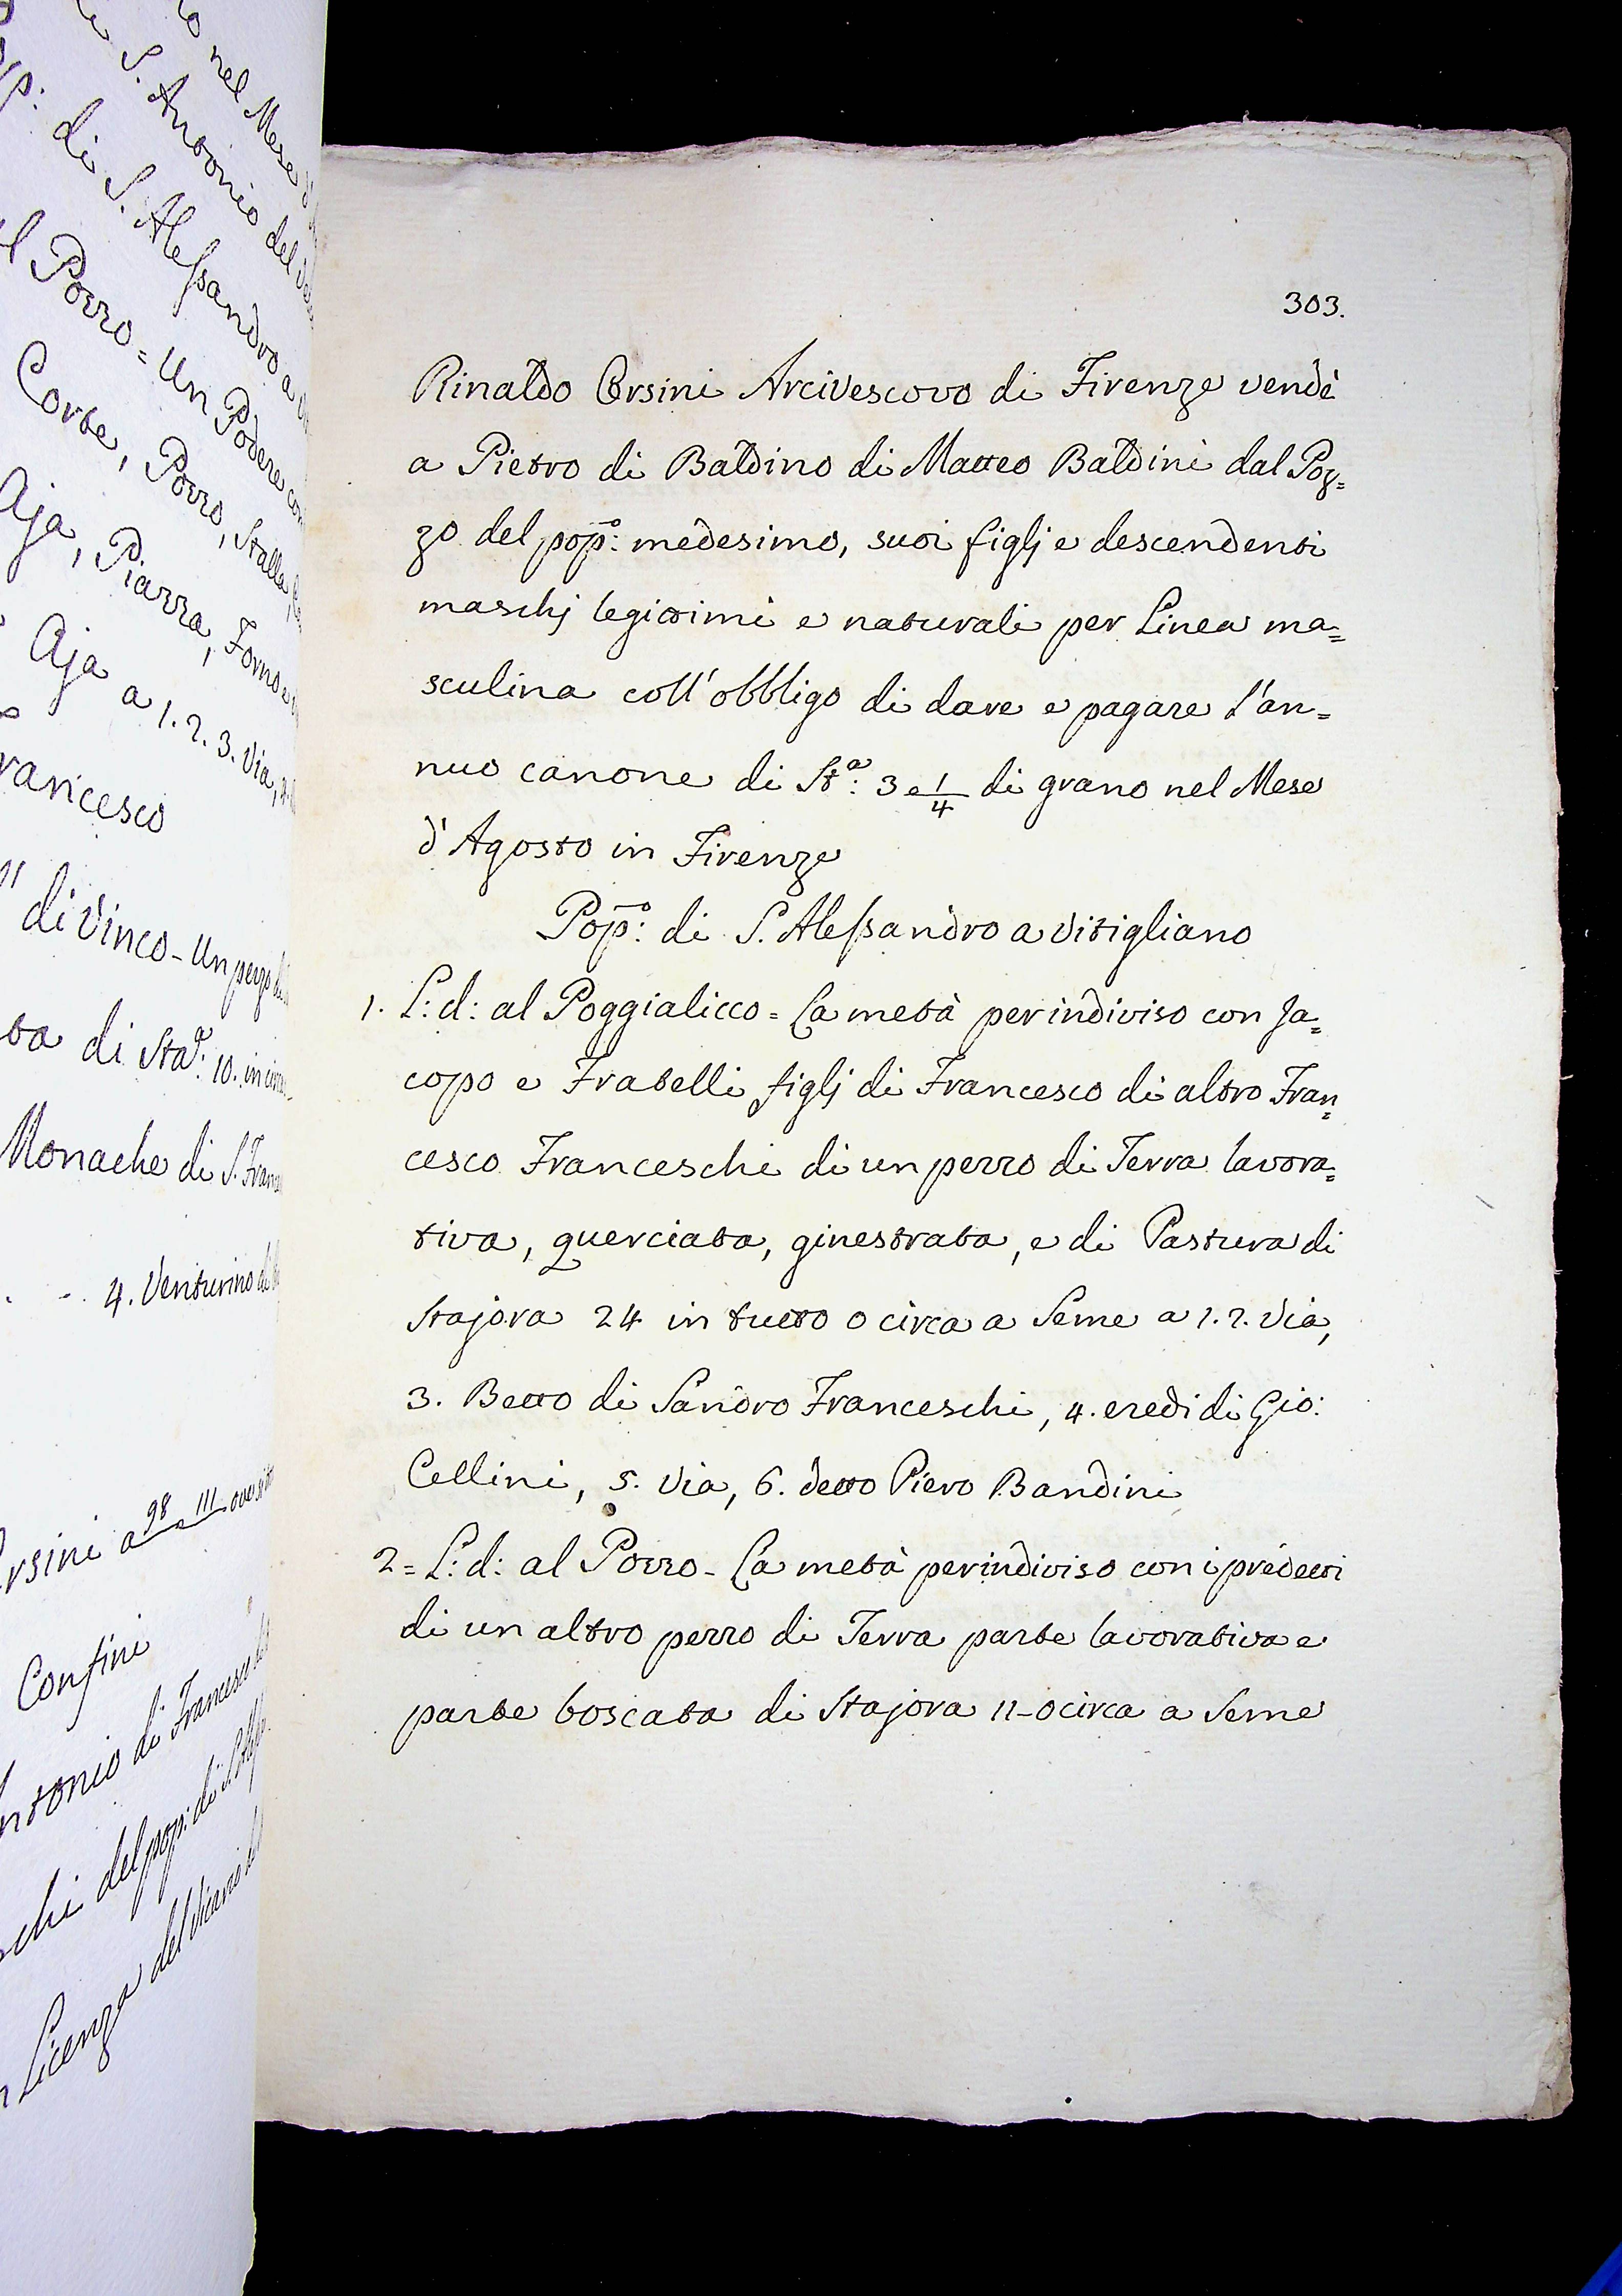 lo nel Mese
S. Antonio del
pop: di S. Alessandro a
al Pozzo = Un Podere con
Corte, Pozzo, Stalla,
Aja, Piazza, Forno e
Aja a 1. 2. 3. Via,
Francesco
di Vinco - Un pezzo di
di Sta: 10. in circa
Monache di S. Fran
4. Venturino di
Orsini a 98 e 111 ove si
Confini
Antonio di Francesco
del pop: di S.
Licenza del Vicario
303.
Rinaldo Orsini Arcivescovo di Firenze vendè
a Pietro di Baldino di Matteo Baldini dal Poz=
zo del popo: medesimo, suoi figlj e descendenti
maschj legittimi e naturali per Linea ma=
sculina coll'obbligo di dare e pagare l'an=
nuo canone di Sta: 3 e 1/4 di grano nel Mese
d'Agosto in Firenze
Popo: di S. Alessandro a Vitigliano
1. L: d: al Poggialicco = La metà per indiviso con Ja=
copo e Fratelli figlj di Francesco di altro Fran=
cesco Franceschi di un pezzo di Terra lavora=
tiva, querciata, ginestrata, e di Pastura di
Stajora 24 in tutto o circa a Seme a 1. 2. Via,
3. Betto di Sandro Franceschi, 4. eredi di Gio:
Cellini, 5. Via, 6. detto Piero Bandini
2= L: d: al Pozzo - La metà per indiviso con i predetti
di un altro pezzo di Terra parte lavorativa e
parte boscata di Stajora 11 - o circa a Seme